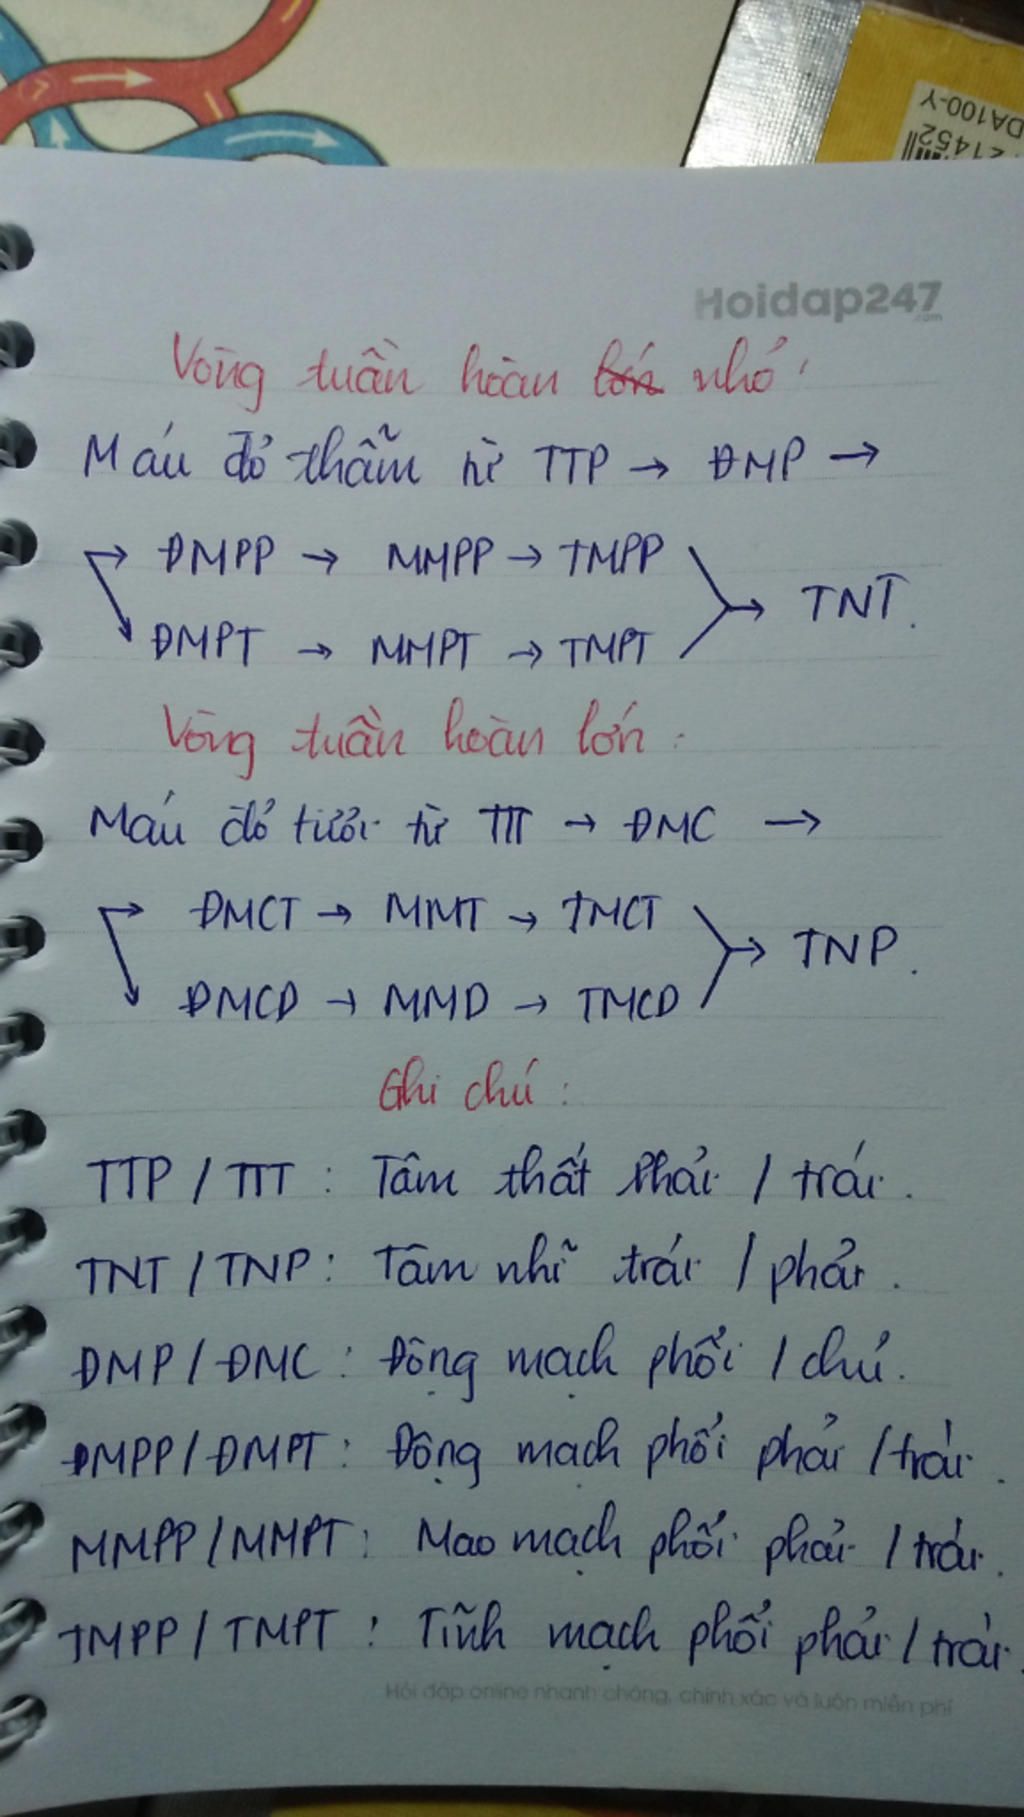 DA100-Y
21452
Hoidap247
.com
Vòng tuần hoàn lớn nhỏ:
Máu đỏ thẫm từ TTP → ĐMP →
→ ĐMPP → MMPP → TMPP
→ TNT.
ĐMPT → MMPT → TMPT
Vòng tuần hoàn lớn:
Máu đỏ tươi từ TTT → ĐMC →
→ ĐMCT → MMT → TMCT
→ TNP.
ĐMCD → MMD → TMCD
Ghi chú:
TTP / TTT : Tâm thất phải / trái.
TNT / TNP : Tâm nhĩ trái / phải.
ĐMP / ĐMC : Động mạch phổi / chủ.
ĐMPP / ĐMPT : Động mạch phổi phải / trái.
MMPP / MMPT : Mao mạch phổi phải / trái.
TMPP / TMPT : Tĩnh mạch phổi phải / trái.
Hỏi đáp online nhanh chóng, chính xác và luôn miễn phí